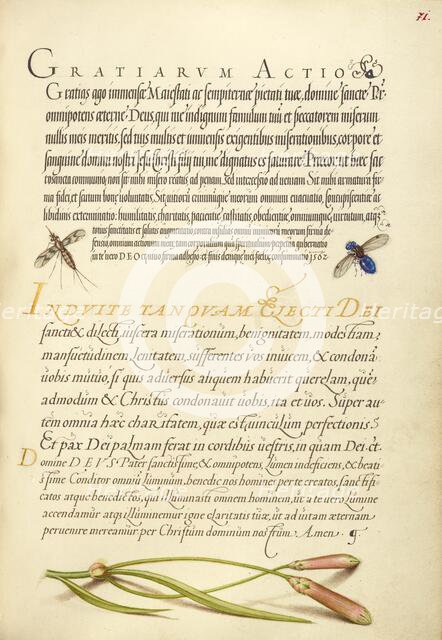 71.
GRATIARVM ACTIO
Gratias ago immensæ Maiestati ac sempiternæ pietati tuæ, domine sancte Pr̄
omnipotens æterne Deus, qui me indignum famulum tuū et peccatorem miserum
nullis meis meritis, sed tuis multis et immensis exigentibus miserationibus, corpore et
sanguine domini nostri Jesu Christi filij tui, me dignatus es saturare. Precor ut hæc sac
rosancta communio, non sit mihi misero reatus ad penam, sed intercessio ad ueniam. Sit mihi armatura fir-
ma fidei, et scutum bonæ uoluntatis. Sit uitiorū cunctorumque meorum omnium euacuatio, concupiscentiæ et
libidinis exterminatio: humilitatis, charitatis, pacientiæ, castitatis, obedientiæ, omniumque uirtutum, atq;
INDVITE TANQVAM ELECTI DEI
sancti & dilecti, uiscera miserationum, benignitatem, modestiam,
mansuetudinem, lenitatem, sufferentes uos inuicem, & condonā
uobis mutuo, si quis aduersus aliquem habuerit querelam, quē-
admodum & Christus condonauit uobis, ita et uos. Super au-
tem omnia hæc charitatem, quæ est uinculum perfectionis.
Et pax Dei palmam ferat in cordibus uestris, in quam Dei. et.
Domine DEVS Pater sanctissime, & omnipotens, Lumen indeficiens, & beati
ssime Conditor omniū Luminum, benedic nos homines per te creatos, sanctifi-
catos atque benedictos, qui illuminasti omnem hominem, ut a te uero Lumine
accendamur atq; illuminemur igne claritatis tuæ, ut ad uitam æternam
peruenire mereamur per Christum dominum nostrum. Amen.